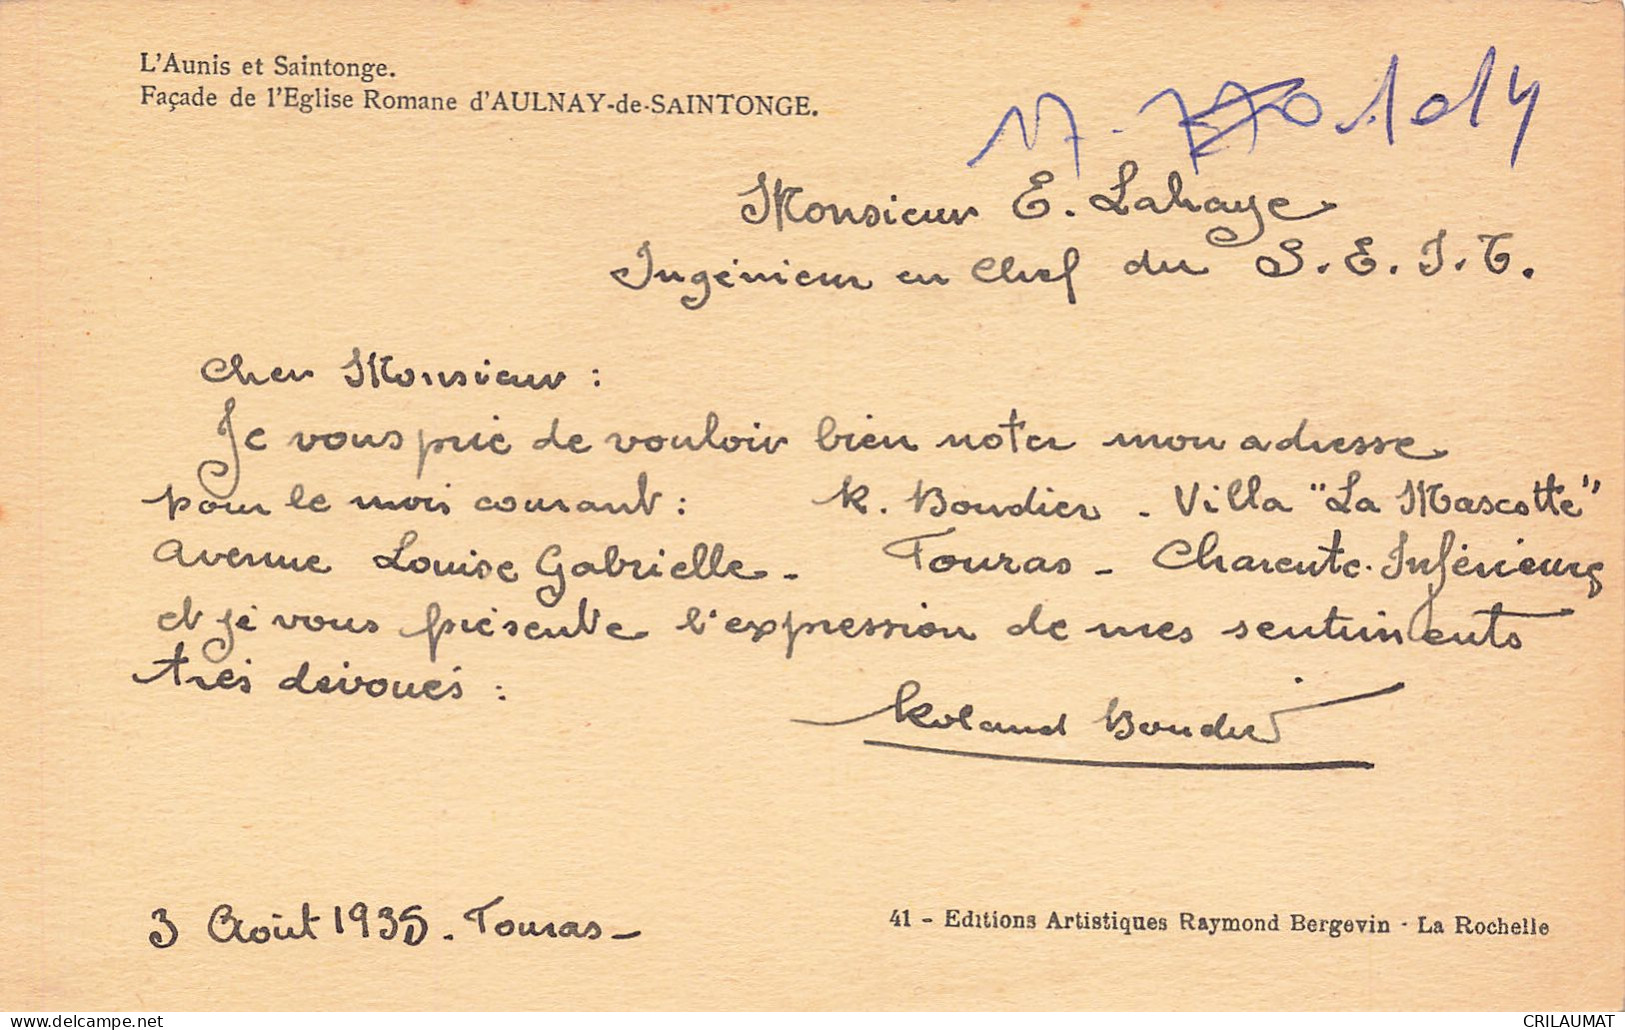 L'Aunis et Saintonge.
Façade de l'Eglise Romane d'AULNAY-de-SAINTONGE.
17. 1014
Monsieur E. Lahaye
Ingénieur en Chef du S.E.I.T.
Cher Monsieur :
Je vous prie de vouloir bien noter mon adresse
pour le mois courant : R. Boudier - Villa "La Mascotte"
Avenue Louise Gabrielle - Fouras - Charente-Inférieure
et je vous présente l'expression de mes sentiments
très dévoués :
Roland Boudier
3 Août 1935 - Fouras -
41 - Editions Artistiques Raymond Bergevin - La Rochelle
CRILAUMAT